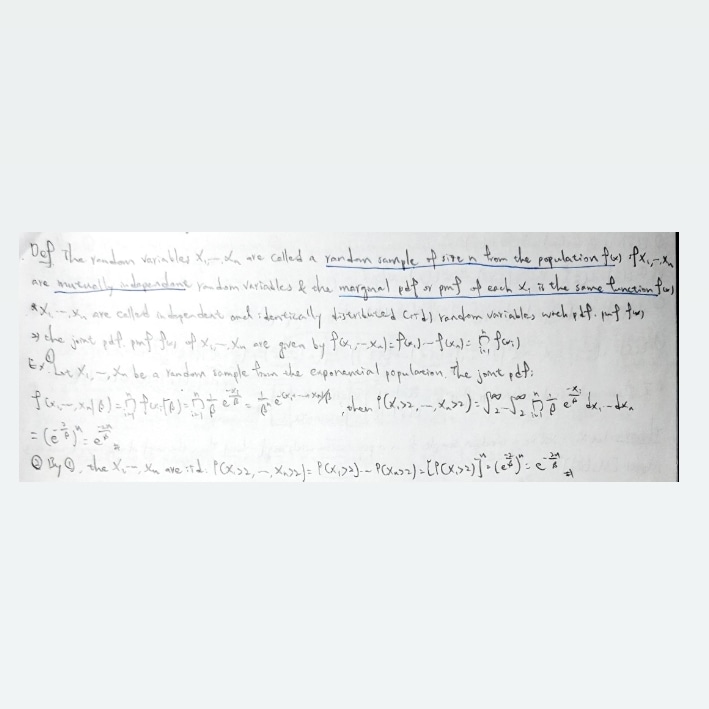 Def. The random variables X₁,…,Xₙ are called a random sample of size n from the population f(x) if X₁,…,Xₙ
are mutually independent random variables & the marginal pdf or pmf of each Xᵢ is the same function f(x)
*X₁,…,Xₙ are called independent and identically distributed (iid) random variables with pdf. pmf f(x)
⇒ the joint pdf. pmf f(x) of X₁,…,Xₙ are given by f(x₁,…,xₙ)=f(x₁)…f(xₙ)=∏ᵢ₌₁ⁿ f(xᵢ)
Ex ① Let X₁,…,Xₙ be a random sample from the exponential population. The joint pdf:
f(x₁,…,xₙ|β)=∏ᵢ₌₁ⁿ f(xᵢ|β)=∏ᵢ₌₁ⁿ 1/β e^(-xᵢ/β) = 1/βⁿ e^(-(x₁+…+xₙ)/β), then P(X₁>2,…,Xₙ>2)=∫₂^∞…∫₂^∞ ∏ᵢ₌₁ⁿ 1/β e^(-xᵢ/β) dx₁…dxₙ
=(e^(-2/β))ⁿ=e^(-2n/β) #
② By ①, the X₁,…,Xₙ are iid. P(X₁>2,…,Xₙ>2)=P(X₁>2)…P(Xₙ>2)=[P(X₁>2)]ⁿ=(e^(-2/β))ⁿ=e^(-2n/β) #